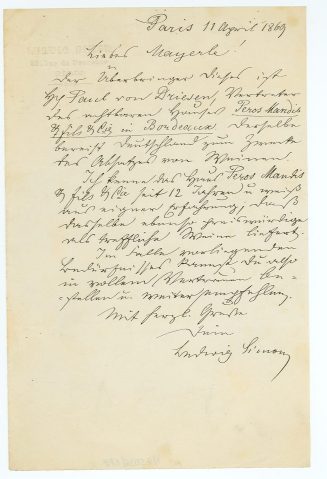 Paris 11 April 1869
Liebes Mayerle!
Der Überbringer dieses ist
H. Paul von Driesen, Vertreter
des achtbaren Hauses Peros Mandis
& fils & Cie in Bordeaux. Derselbe
bereist Deutschland zum Zwecke
des Absatzes von Weinen.
Ich kenne das Haus Peros Mandis
& fils & Cie seit 12 Jahren u weiß
aus eigner Erfahrung, daß
dasselbe ebenso preiswürdige
als treffliche Weine liefert.
Im Falle vorliegenden
Bedürfnisses kannst Du also
in vollem Vertrauen be-
stellen u. weiterempfehlen.
Mit herzl. Gruße
Dein
Ludwig Simon